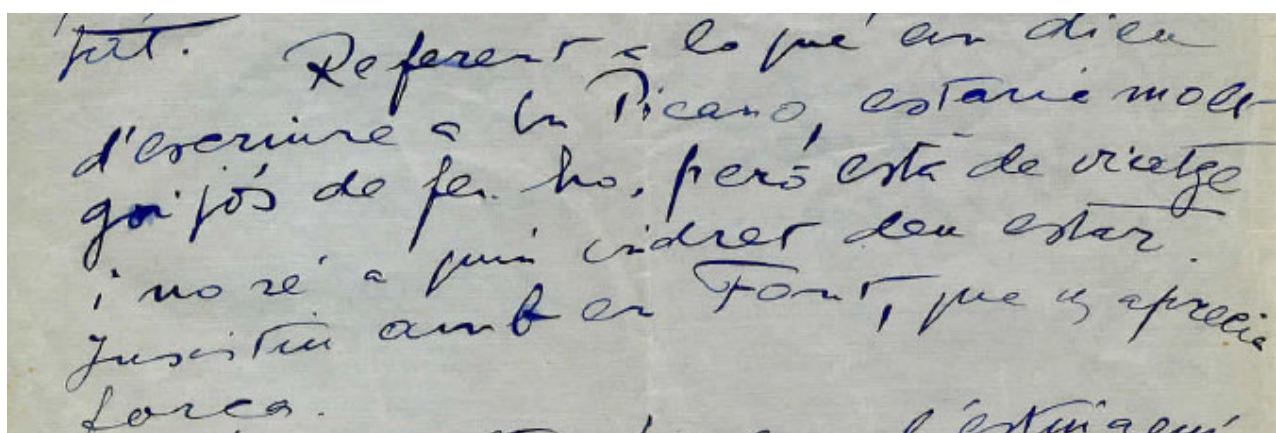 fet. Referent a lo què em dieu
d'escriure a En Picano, estaria molt
goijós de fer-ho, peró está de viatge
i no sé a quin indret deu estar.
Insistiu amb en Font, que us aprecia
força.
l'estui aquí